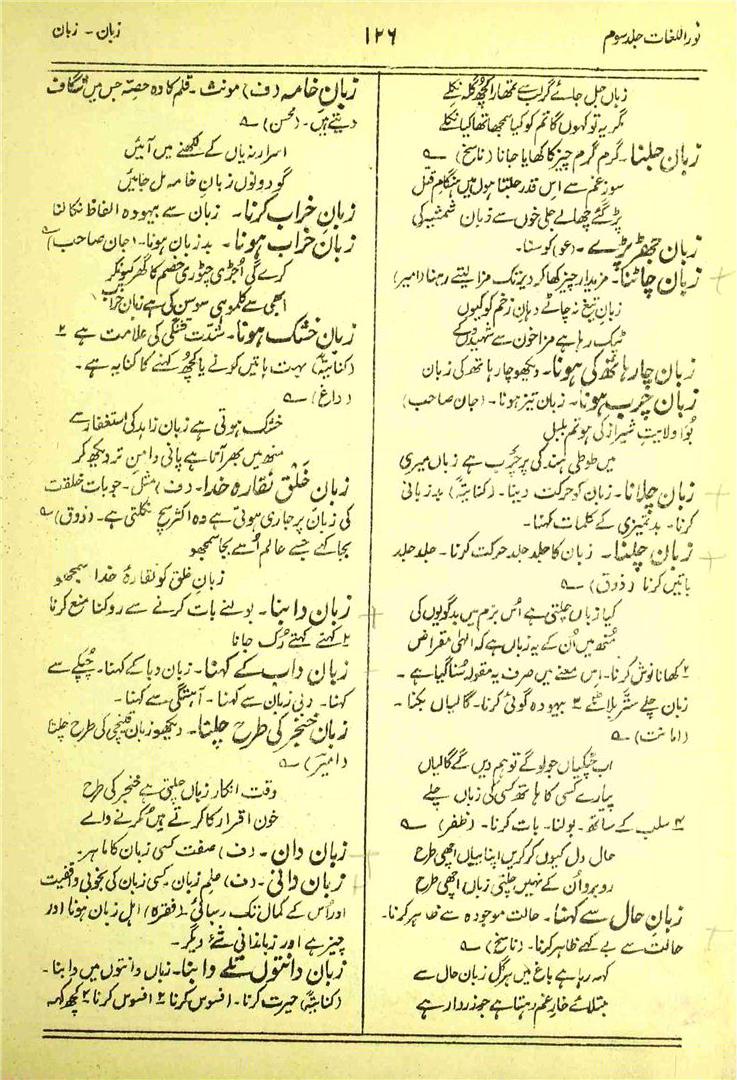 نور اللغات جلد سوم
۱۲۶
زبان - زبان
زباں جل جائے گر لب سے تمھارا کچھ گلہ نکلے
مگر یہ تو کہوں گا تم کو کیا سمجھا تھا کیا نکلے
زبان جلنا۔ گرم گرم چیز کا کھایا جانا (ناسخ) ؎
سوز غم سے اس قدر جلتا ہوں میں ہنگام قتل
پڑ گئے چھالے مرے خوں سے زبان شمشیر کی
زبان جھڑ پڑے۔ (عو) کوسنا۔
زبان چاٹنا۔ مزیدار چیز کھا کر دیر تک مزا لیتے رہنا (امیر)
زبان تیغ نہ چاٹے دہان زخم کو کیوں
ٹپک رہا ہے مزا خون سے شہیدوں کے
زبان چار ہاتھ کی ہونا۔ دیکھو چار ہاتھ کی زبان
زبان چرب ہونا۔ زبان تیز ہونا۔ (جان صاحب)
بوا ولایت شیراز کی ہو تم بلبل
میں طوطی ہند کی پر چرب ہے زباں میری
زبان چلانا۔ زبان کو حرکت دینا۔ (کنایۃً) بد زبانی
کرنا۔ بدتمیزی کے کلمات کہنا۔
زبان چلنا۔ زبان کا جلد جلد حرکت کرنا۔ جلد جلد
باتیں کرنا (ذوق) ؎
کیا زباں چلتی ہے اُس بزم میں بدگویوں کی
مُنھ میں اُن کے یہ زباں ہے کہ الٰہی مقراض
۲ کھانا نوش کرنا۔ اس معنے میں صرف یہ مقولہ سُنا گیا ہے۔
زبان چلے ستّر بلا ٹلے ۳ بیہودہ گوئی کرنا۔ گالیاں بکنا۔
(امانت) ؎
اب چٹکیاں جو لو گے تو ہم دیں گے گالیاں
پیارے کسی کا ہاتھ کسی کی زباں چلے
۴ سلب کے ساتھ۔ بولنا۔ بات کرنا۔ (ظفر) ؎
حال دل کیوں کر کریں اپنا بیاں اچھی طرح
روبرو اُن کے نہیں چلتی زباں اچھی طرح
زبان حال سے کہنا۔ حالت موجودہ سے ظاہر کرنا۔
حالت سے بے کہے ظاہر کرنا۔ (ناسخ) ؎
کہہ رہا ہے باغ میں ہر گل زبان حال سے
مبتلائے خار غم رہتا ہے جو زردار ہے
زبان خامہ (ف) مونث۔ قلم کا وہ حصہ جس میں شگاف
دیتے ہیں۔ (محسن) ؎
اسرار نہاں کے لکھنے میں آئیں
گو دونوں زبان خامہ مل جائیں
زبان خراب کرنا۔ زبان سے بیہودہ الفاظ نکالنا
زبان خراب ہونا۔ بد زبان ہونا۔ (جان صاحب) ؎
کرے گی اُجڑی چٹوری خصم کا گھر کیونکر
ابھی سے کلموہی سوسن کی ہے زبان خراب
زبان خشک ہونا۔ شدت تشنگی کی علامت ہے ۲
(کنایۃً) بہت باتیں کرنے یا کچھ کہنے کا کنایہ ہے۔
(داغ) ؎
خشک ہوتی ہے زبان زاہد کی استغفار سے
منھ میں بھر آتا ہے پانی دامن تر دیکھ کر
زبان خَلق نقارہ خدا۔ (ف) مثل۔ جو بات خلقت
کی زبان پر جاری ہوتی ہے وہ اکثر سچ نکلتی ہے۔ (ذوق) ؎
بجا کہے جسے عالم اُسے بجا سمجھو
زبان خلق کو نقارۂ خدا سمجھو
زبان دابنا۔ بولنے بات کرنے سے روکنا منع کرنا
۲ کہتے کہتے رُک جانا
زبان داب کے کہنا۔ زبان دبا کے کہنا۔ چُپکے سے
کہنا۔ دبی زبان سے کہنا۔ آہستگی سے کہنا۔
زبان خنجر کی طرح چلنا۔ دیکھو زبان قینچی کی طرح چلنا
(امیر) ؎
وقت انکار زباں چلتی ہے خنجر کی طرح
خون اقرار کا کرتے ہیں مکرنے والے
زبان دان۔ (ف) صفت کسی زبان کا ماہر۔
زبان دانی۔ (ف) علم زبان۔ کسی زبان کی بخوبی واقفیت
اور اُس کے کمال تک رسائی (فقرہ) اہل زبان ہونا اور
چیز ہے اور زباندانی شے دیگر۔
زبان دانتوں تلے دابنا۔ زباں دانتوں میں دابنا۔
(کنایۃً) حیرت کرنا۔ افسوس کرنا ۲ افسوس کرنا ۲ کچھ کہہ